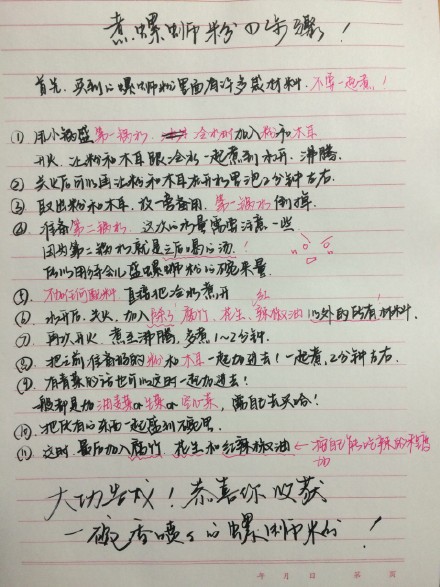 煮螺蛳粉的步骤！
首先，买到的螺蛳粉里面有许多袋材料，不要一起煮！
① 用小锅盛第一锅水，冷水时加入粉和木耳
开火，让粉和木耳跟冷水一起煮到水开，沸腾。
② 关火后可以再让粉和木耳在开水里泡2分钟左右
③ 取出粉和木耳，放一旁备用，第一锅水倒掉
④ 准备第二锅水，这次的水量需要注意一些
因为第二锅水就是之后喝的汤！
所以用待会儿盛螺蛳粉的碗来量
⑤ 不加任何配料 直接把冷水煮开
⑥ 水开后，关火，加入除了腐竹、花生、红辣椒油以外的所有材料
⑦ 再次开火 煮至沸腾，多煮1~2分钟
⑧ 把之前准备好的粉和木耳一起加进去！一起煮，2分钟左右
⑨ 有青菜的话也可以这时一起加进去！
一般都是加油麦菜or生菜or空心菜，需自己去买哈！
⑩ 把所有的东西一起盛到碗里
⑪ 这时，最后加入腐竹，花生和红辣椒油←按自己能吃辣的程度加
大功告成！恭喜你收获
一碗香喷喷的螺蛳粉！
年 月 日 第 页